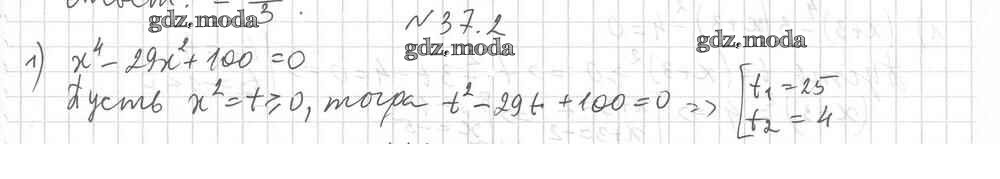 gdz.moda
№37.2
gdz.moda
gdz.moda
1) x⁴ - 29x² + 100 = 0
Пусть x² = t ≥ 0, тогда t² - 29t + 100 = 0 => [t₁ = 25
t₂ = 4